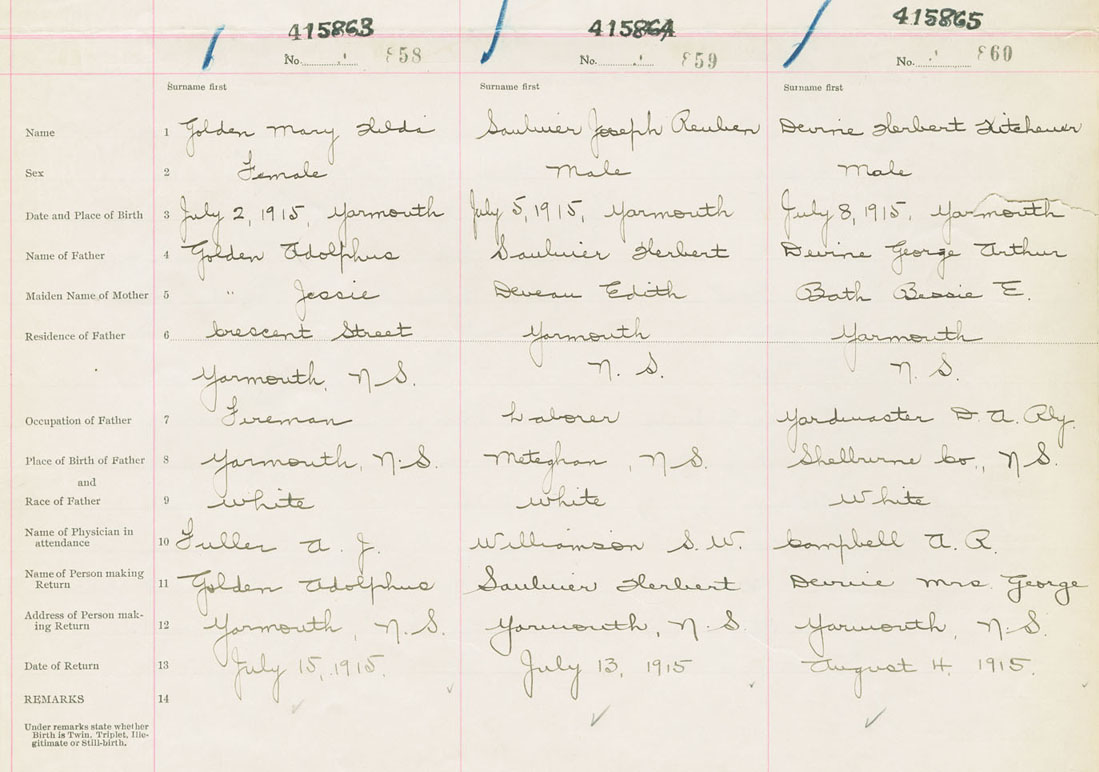 415863 415864 415865
No. 858 No. 859 No. 860
Surname first Surname first Surname first
Name 1 Golden Mary Hilda Saulnier Joseph Reuben Devine Herbert Kitchener
Sex 2 Female Male Male
Date and Place of Birth 3 July 2, 1915, Yarmouth July 5, 1915, Yarmouth July 8, 1915, Yarmouth
Name of Father 4 Golden Adolphus Saulnier Herbert Devine George Arthur
Maiden Name of Mother 5 " Jessie Deveau Edith Bath Bessie E.
Residence of Father 6 Crescent Street Yarmouth Yarmouth
Yarmouth, N.S. N. S. N. S.
Occupation of Father 7 Fireman Laborer Yardmaster D. A. Rly.
Place of Birth of Father 8 Yarmouth, N.S. Meteghan, N.S. Shelburne Co., N.S.
and
Race of Father 9 White White White
Name of Physician in
attendance 10 Fuller A. J. Williamson S. W. Campbell A. R.
Name of Person making
Return 11 Golden Adolphus Saulnier Herbert Devine Mrs George
Address of Person mak-
ing Return 12 Yarmouth, N.S. Yarmouth, N.S. Yarmouth, N.S.
Date of Return 13 July 15, 1915. July 13, 1915 August 4, 1915.
REMARKS 14
Under remarks state whether
Birth is Twin, Triplet, Ille-
gitimate or Still-birth.